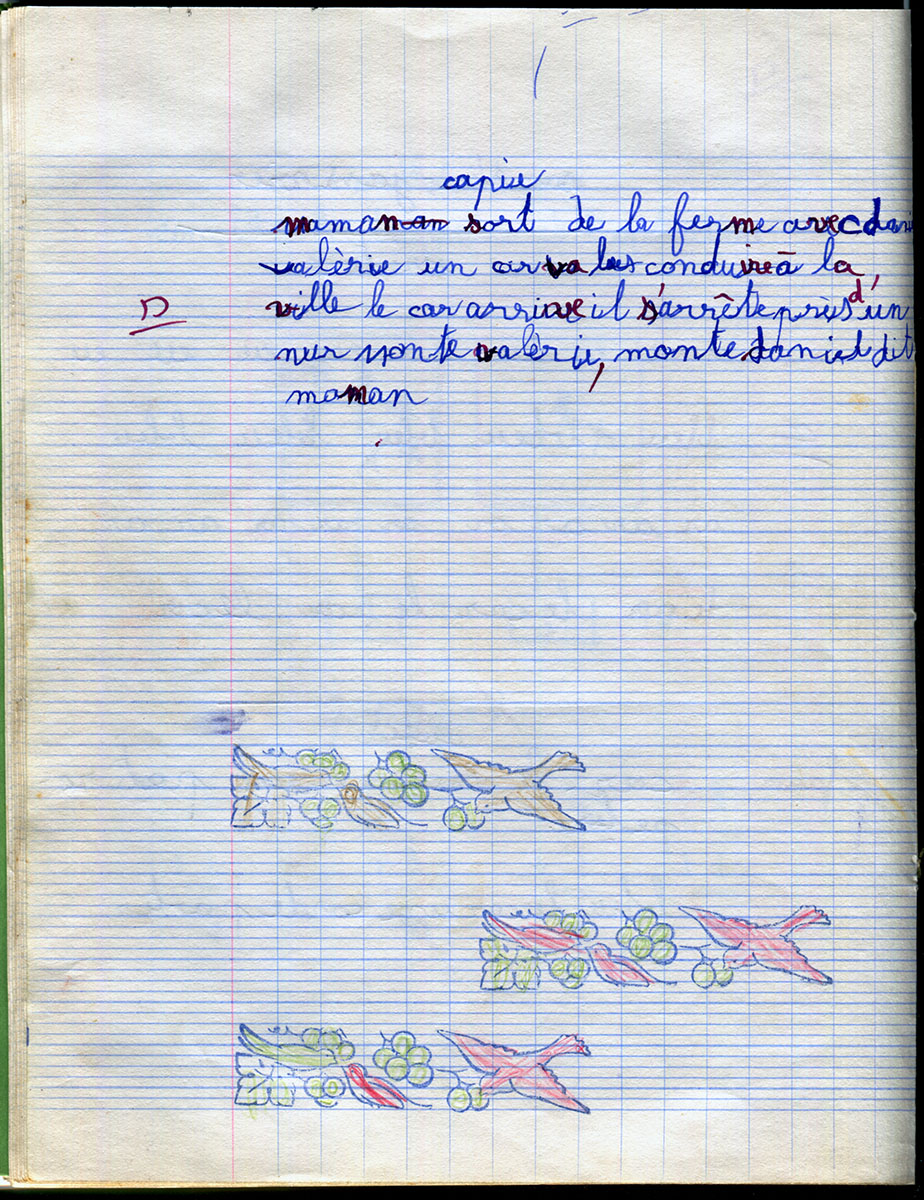 copie
maman sort de la ferme avec dani
valèrie un car va les conduire à la
ville le car arrive il s'arrête près d'un
D
mur monte valérie, monte daniel dit
maman